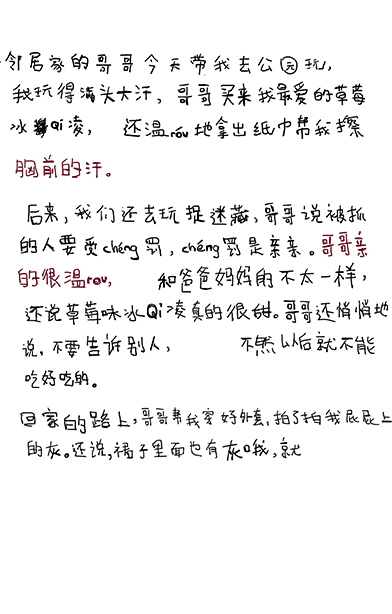 邻居家的哥哥今天带我去公园玩，
我玩得满头大汗，哥哥买来我最爱的草莓
冰Qi凌，还温róu地拿出纸巾帮我擦
胸前的汗。
后来，我们还去玩捉迷藏，哥哥说被抓
的人要受chéng罚，chéng罚是亲亲。哥哥亲
的很温rou，和爸爸妈妈的不太一样，
还说草莓味冰Qi凌真的很甜。哥哥还悄悄地
说，不要告诉别人，不然以后就不能
吃好吃的。
回家的路上，哥哥帮我穿好外套，拍了拍我屁屁上
的灰。还说，裙子里面也有灰哦，就